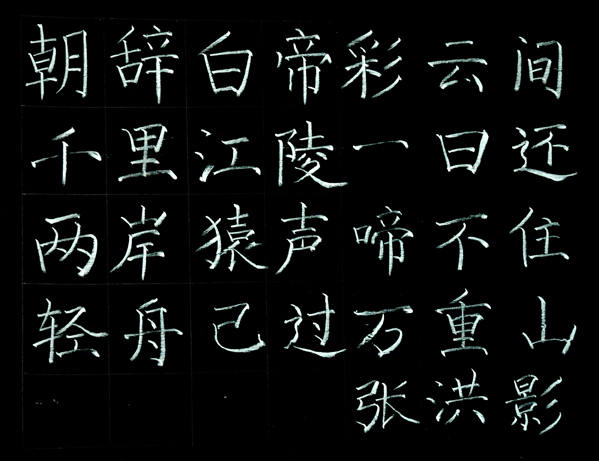 朝辞白帝彩云间
千里江陵一日还
两岸猿声啼不住
轻舟已过万重山
张洪影